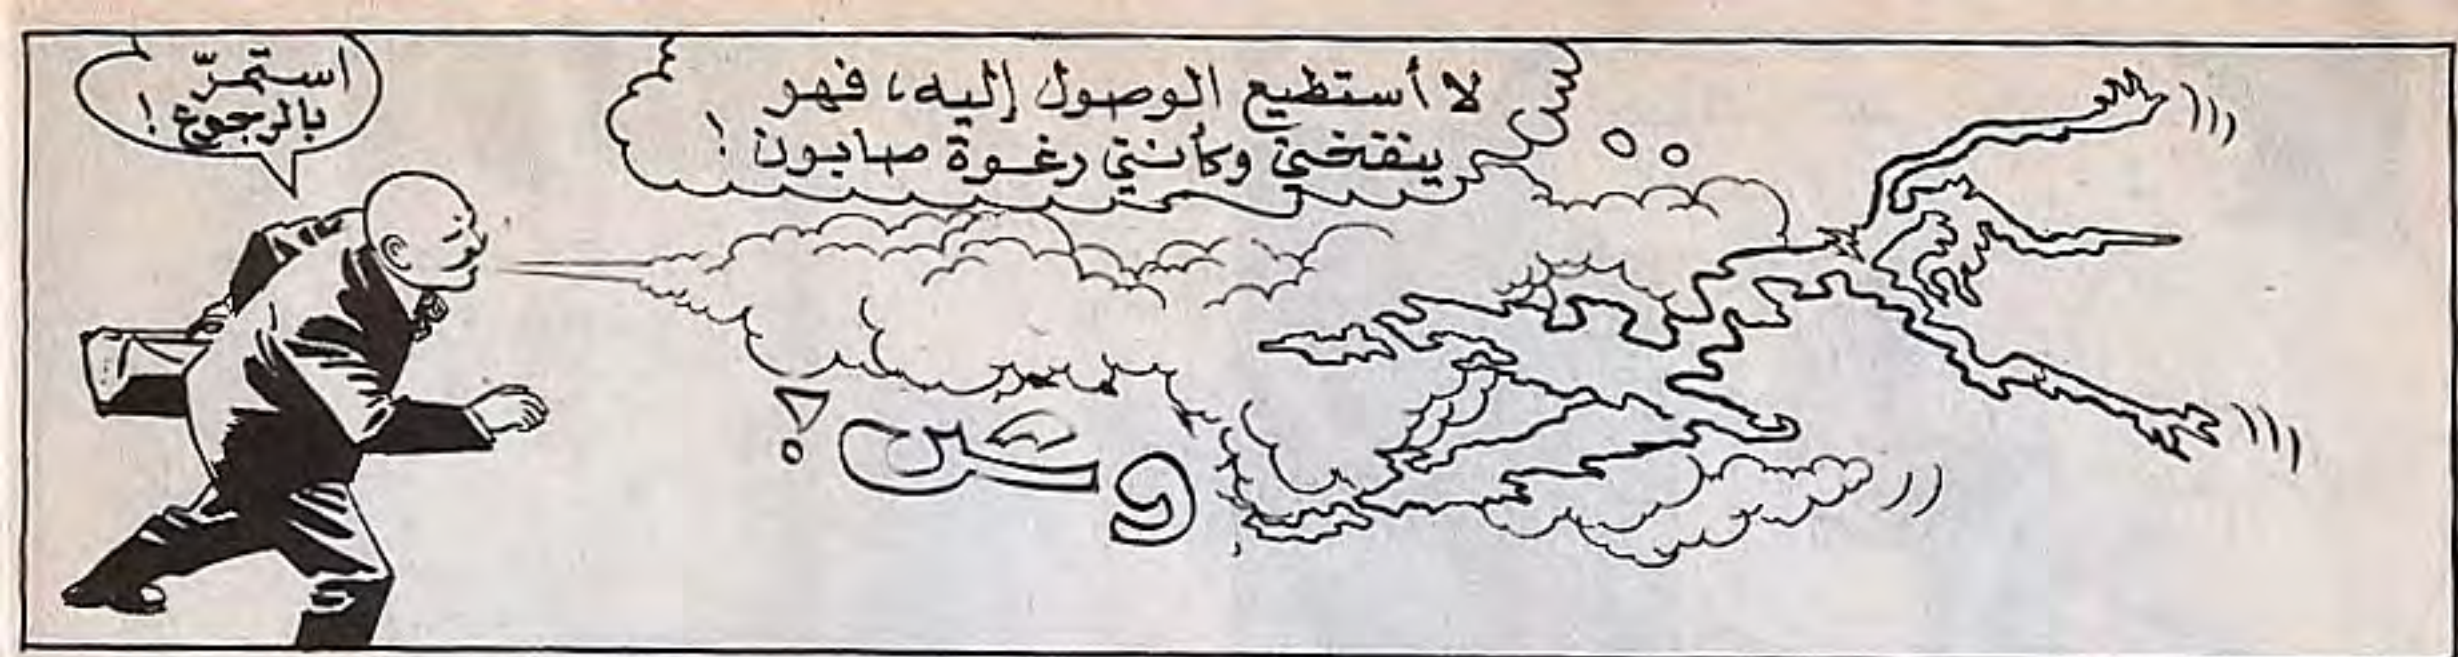 لا أستطيع الوصول إليه، فهو
ينفخني وكأنني رغوة صابون !
وش !
استمرّ
بالرجوع !